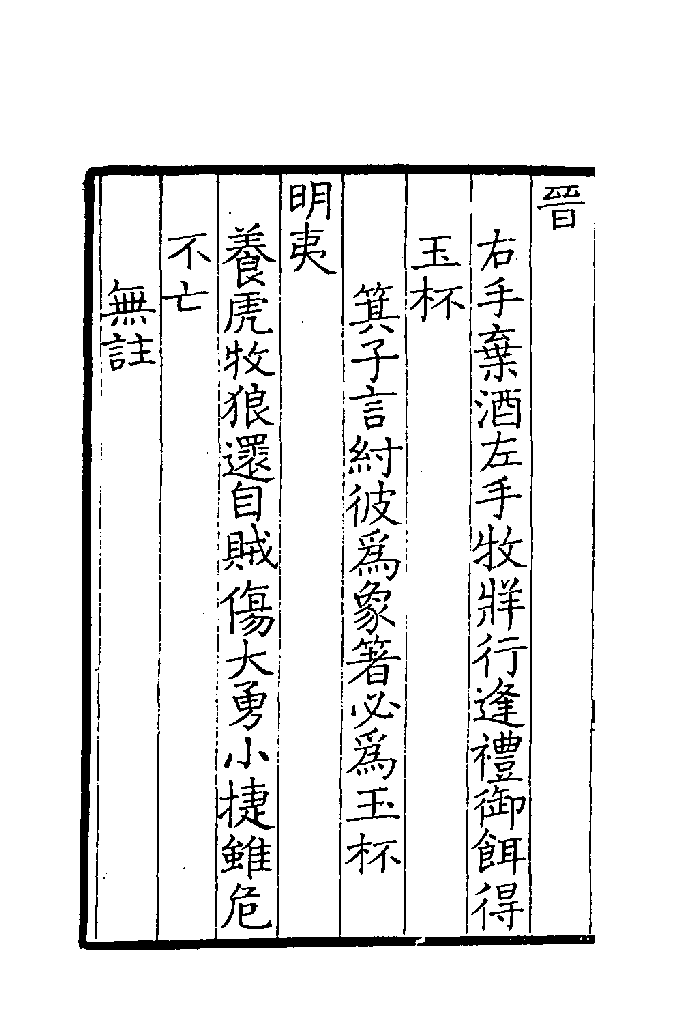 晉
右手棄酒左手牧牂行逢禮御餌得
玉杯
箕子言紂彼爲象箸必爲玉杯
明夷
養虎牧狼還自賊傷大勇小捷雖危
不亡
無註